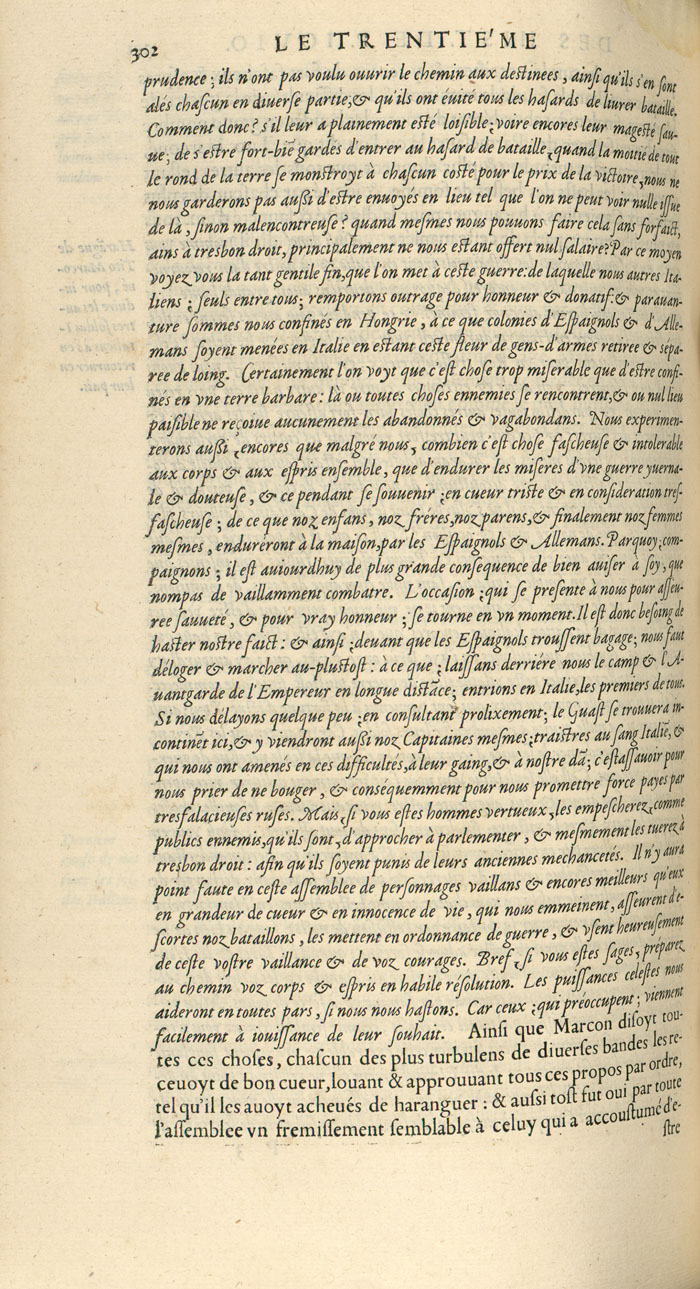 302 LE TRENTIE'ME
prudence ; ils n'ont pas voulu ouurir le chemin aux destinees , ainsi qu'ils s'en sont
alés chascun en diuerse partie,& qu'ils ont euité tous les hasards de liurer bataille.
Comment donc ? s'il leur a plainement esté loisible ; voire encores leur magesté sau-
ue ; de s'estre fort-biē gardés d'entrer au hasard de bataille , quand la moitié de tout
le rond de la terre se monstroyt à chascun costé pour le prix de la victoire , nous ne
nous garderons pas aussi d'estre enuoyés en lieu tel que l'on ne peut voir nulle issue
de là , sinon malencontreuse ? quand mesmes nous pouuons faire cela sans forfaict,
ains à tresbon droit, principalement ne nous estant offert nul salaire? Par ce moyen
voyez vous la tant gentile fin,que l'on met à ceste guerre:de laquelle nous autres Ita-
liens ; seuls entre tous; remportons outrage pour honneur & donatif:& parauan-
ture sommes nous confinés en Hongrie , à ce que colonies d'Espaignols & d'Alle-
mans soyent menées en Italie en estant ceste fleur de gens-d'armes retiree & sepa-
ree de loing. Certainement l'on voyt que c'est chose trop miserable que d'estre confi-
nés en vne terre barbare : là ou toutes choses ennemies se rencontrent,& ou nul lieu
paisible ne reçoiue aucunement les abandonnés & vagabondans. Nous experimen-
terons aussi ; encores que malgré nous , combien c'est chose fascheuse & intolerable
aux corps & aux espris ensemble , que d'endurer les miseres d'vne guerre yuerna-
le & douteuse , & ce pendant se souuenir ; en cueur triste & en consideration tres-
fascheuse ; de ce que noz enfans , noz fréres,noz parens,& finalement noz femmes
mesmes , endureront à la maison,par les Espaignols & Allemans. Parquoy; com-
paignons ; il est auiourdhuy de plus grande consequence de bien auiser à soy, que
nompas de vaillamment combatre. L'occasion ; qui se presente à nous pour asseu-
ree sauueté, & pour vray honneur ; se tourne en vn moment. Il est donc besoing de
haster nostre faict : & ainsi ; deuant que les Espaignols troussent bagage; nous faut
déloger & marcher au-plustost : à ce que ; laissans derriére nous le camp & l'A-
uantgarde de l'Empereur en longue distāce; entrions en Italie,les premiers de tout.
Si nous délayons quelque peu ; en consultant prolixement; le Guast se trouuera in-
continēt ici,& y viendront aussi noz Capitaines mesmes ; traistres au sang Italiē, &
qui nous ont amenés en ces difficultés,à leur gaing,& à nostre dā; c'est assauoir pour
nous prier de ne bouger , & conséquemment pour nous promettre force payes par
tresfalacieuses ruses. Mais , si vous estes hommes vertueux , les empescherez , comme
publics ennemis,qu'ils sont, d'approcher à parlementer , & mesmement les tuerez à
tresbon droit : afin qu'ils soyent punis de leurs anciennes mechancetés. Il n'y aura
point faute en ceste assemblee de personnages vaillans & encores meilleurs qu'eux
en grandeur de cueur & en innocence de vie , qui nous emmeinent , asseurent d'e-
scortes noz bataillons , les mettent en ordonnance de guerre , & vsent heureusement
de ceste vostre vaillance & de voz courages. Bref , si vous estes sages , préparez
au chemin voz corps & espris en habile résolution. Les puissances celestes nous
aideront en toutes pars , si nous nous hastons. Car ceux ; qui préoccupent ; viennent
facilement à iouissance de leur souhait. Ainsi que Marcon disoyt tou-
tes ces choses, chascun des plus turbulens de diuerses bandes les re-
ceuoyt de bon cueur,louant & approuuant tous ces propos par ordre,
tel qu'il les auoyt acheués de haranguer : & aussi tost fut oui par toute
l'assemblee vn fremissement semblable à celuy qui a accoustumé d'e-
stre